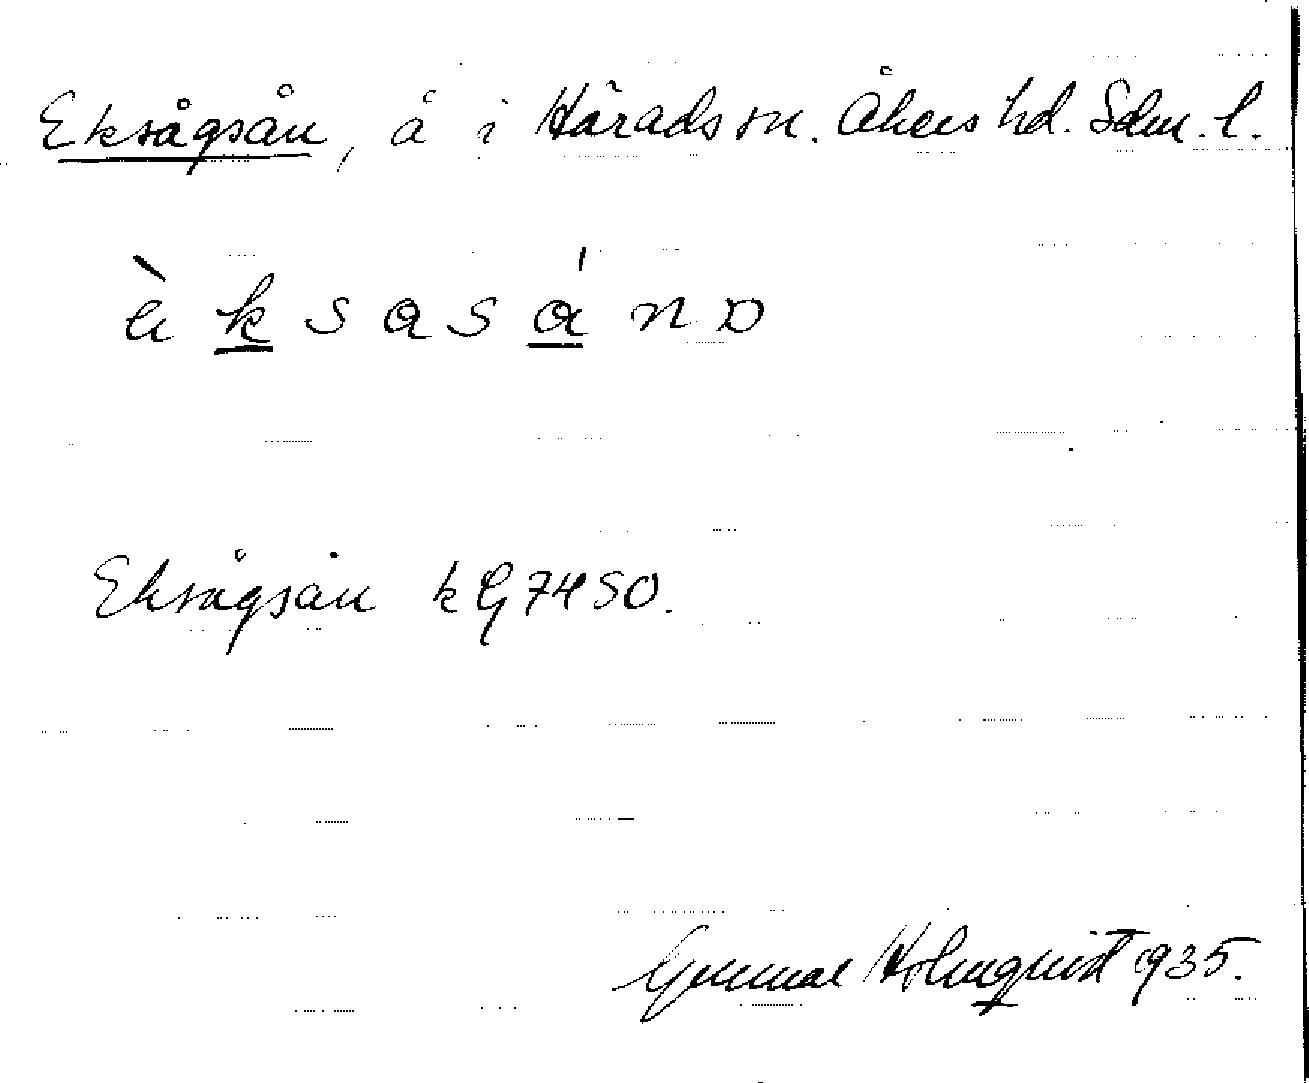 Eksågsån, å i Härads sn. Åkers hd. Sdm. l.
Eksågsån kG 7450.
Gunnar Holmqvist 1935.